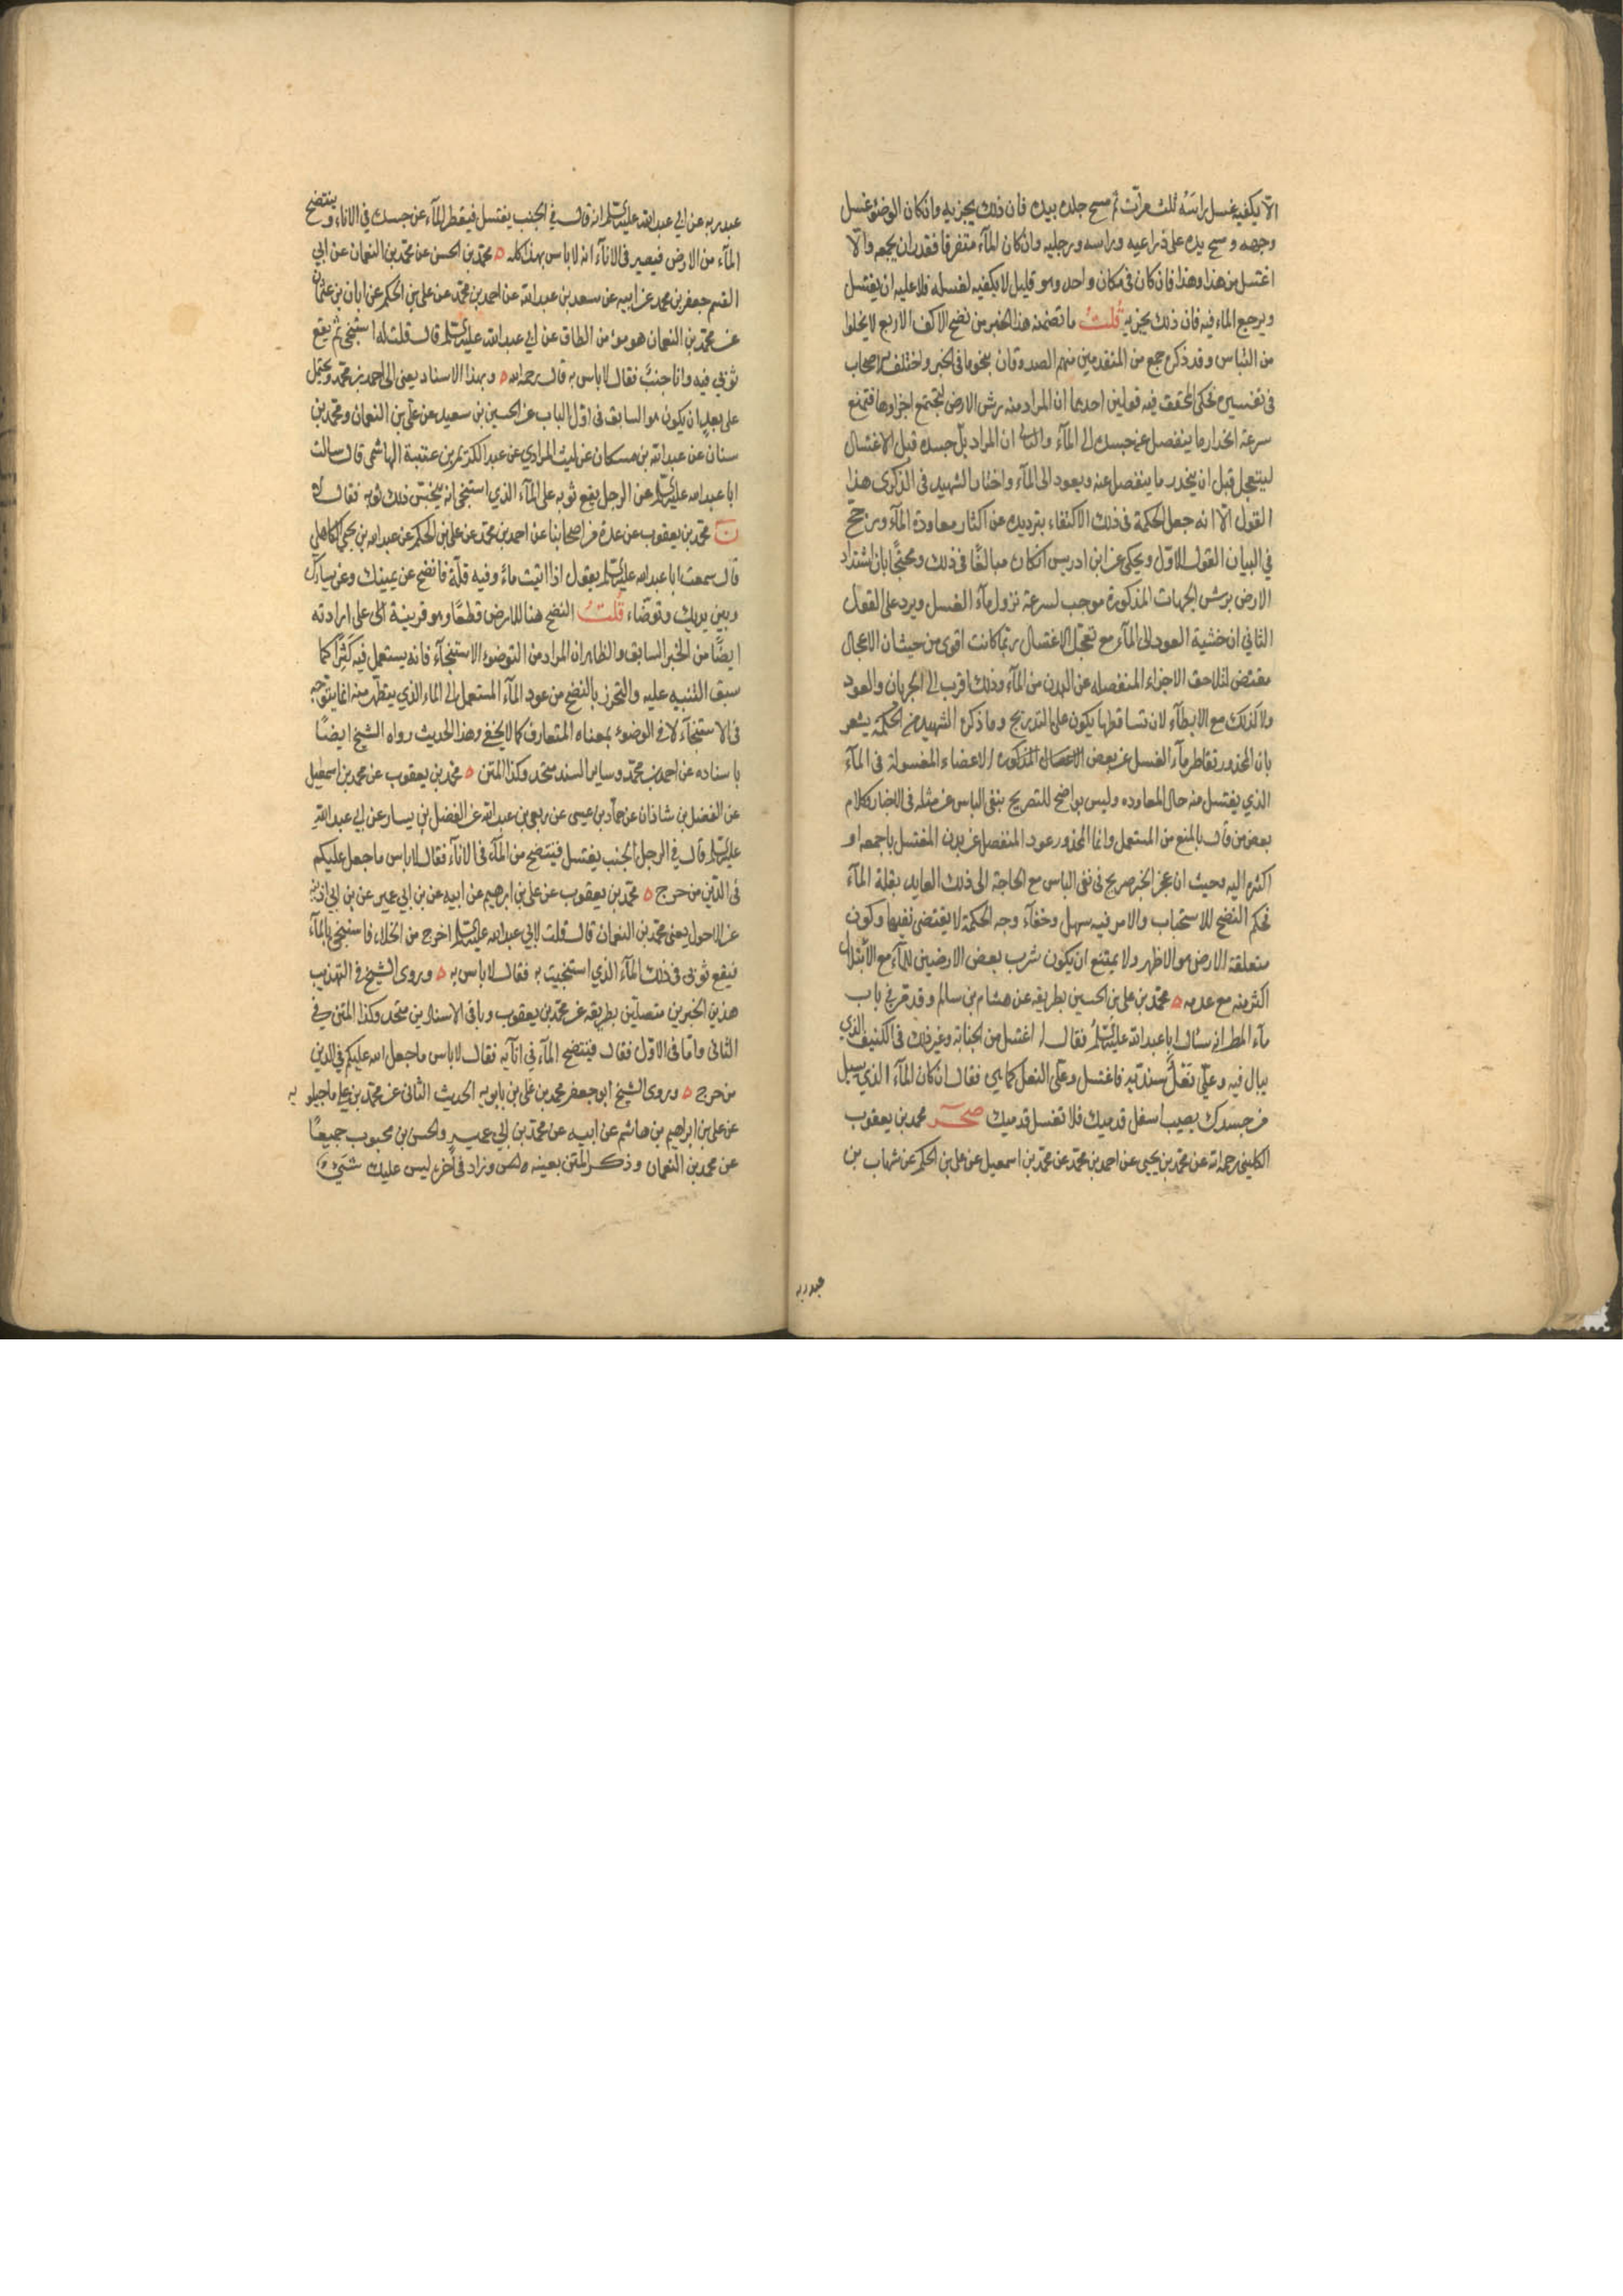 الا يكفيه غسل راسه ثلث مرات ثم مسح جلده بيده فان ذلك يجزيه وان كان الوضوء غسل
وجهه ومسح يده على ذراعيه وراسه ورجليه وان كان المآء متفرقا فقدر ان يجمعه والا
اغتسل من هذا وهذا فان كان في مكان واحد وهو قليل لا يكفيه لغسله فلا عليه ان يغتسل
ويرجع الماء فيه فان ذلك يجزيه قلت ما تضمنه هذا الخبر من نضح الاكف الاربع لا يخلوا
من التباس وقد ذكره جمع من المتقدمين منهم الصدوقان بنحو ما في الخبر واختلف الاصحاب
في تفسيره فحكى المحقق فيه قولين احدهما ان المراد منه رش الارض لتجتمع اجزاوها فتمنع
سرعة انحدار ما ينفصل عن جسده الى المآء والثاني ان المراد بل جسده قبل الاغتسال
ليتعجل قبل ان ينحدر ما ينفصل عنه ويعود الى المآء واختار الشهيد في الذكرى هذا
القول الا انه جعل الحكمة في ذلك الاكتفاء بترديده عن اكثار معاودة المآء ورجح
في البيان القول الاول ويحكى عن ابن ادريس انكاره مبالغا في ذلك ومحتجا بان اشتداد
الارض برش الجهات المذكورة موجب لسرعة نزول مآء الغسل ويرد على القول
الثاني ان خشية العود الى المآء مع تعجل الاغتسال ربما كانت اقوى من حيث ان الاعجال
مقتض لتلاحق الاجزاء المنفصله عن البدن من المآء وذلك اقرب الى الجريان والعود
ولا كذلك مع الابطآء لان تساقطها يكون على التدريج وما ذكره الشهيد من الحكمة يشعر
بان المحذور تقاطر مآء الغسل عن بعض الاعضاء المغسولة في المآء
الذي يغتسل منه حال المعاوده وليس بواضح للتصريح بنفي الباس عن مثله في الاخبار ككلام
بعض من قال بالمنع من المستعمل وانما المحذور عود المنفصل عن بدن المغتسل باجمعه او
اكثره اليه وحيث ان عجز الخبر صريح في نفي الباس مع الحاجة الى ذلك العايد بقلة المآء
فحكم النضح للاستحباب والامر فيه سهل وخفآء وجه الحكمة لا يقتضي نفيها وكون
متعلقة الارض هو الاظهر ولا يمتنع ان يكون شرب بعض الارضين للمآء مع الابتلال
اكثر منه مع عدمه محمد بن علي بن الحسين بطريقه عن هشام بن سالم وقد مر في باب
مآء المطر انه سئال ابا عبد الله عليه السلم فقال له اغتسل من الجنابة وغير ذلك في الكنيف الذي
يبال فيه وعلي نعل سندية فاغتسل وعلي النعل كما هي فقال ان كان المآء الذي يسيل
من جسدك يصيب اسفل قدميك فلا تغسل قدميك صحر محمد بن يعقوب
الكليني رحمه الله عن محمد بن يحيى عن احمد بن محمد عن محمد بن اسمعيل عن علي بن الحكم عن شهاب بن
عبد ربه
عبد ربه عن ابي عبد الله عليه السلم انه قال في الجنب يغتسل فيقطر المآء عن جسده في الاناء وينتضح
المآء من الارض فيصير في الانآء انه لا باس بهذا كله محمد بن الحسن عن محمد بن النعمان عن ابي
القسم جعفر بن محمد عن ابيه عن سعد بن عبد الله عن احمد بن محمد عن علي بن الحكم عن ابان بن عثمان
عن محمد بن النعمان هو مؤمن الطاق عن ابي عبد الله عليه السلم قال قلت له استنجى ثم يقع
ثوبي فيه وانا جنب فقال لا باس به قال رحمه الله وبهذا الاسناد يعني الى احمد بن محمد ويحتمل
على بعد ان يكون هو السابق في اول الباب عن الحسين بن سعيد عن علي بن النعمان ومحمد بن
سنان عن عبد الله بن مسكان عن ليث المرادي عن عبد الكريم بن عتبة الهاشمي قال سالت
ابا عبد الله عليه السلم عن الرجل يقع ثوبه على المآء الذي استنجى انه ينجس ذلك ثوبه فقال لا
ن محمد بن يعقوب عن عدة من اصحابنا عن احمد بن محمد عن علي بن الحكم عن عبد الله بن يحيى الكاهلي
قال سمعت ابا عبد الله عليه السلم يقول اذا اتيت ماء وفيه قلة فانضح عن يمينك وعن يسارك
وبين يديك وتوضاء قلت النضح هنا للارض قطعا وهو قرينة اخرى على ارادته
ايضا من الخبر السابق والظاهر ان المراد من التوضوء الاستنجآء فانه يستعمل فيه كثيرا كما
سبق التنبيه عليه والتحرز بالنضح من عود المآء المستعمل الى الماء الذي يتطهر منه انما يتوجه
في الاستنجآء لا في الوضوء بمعناه المتعارف كما لا يخفى وهذا الحديث رواه الشيخ ايضا
باسناده عن احمد بن محمد وساير السند متحد وكذا المتن محمد بن يعقوب عن محمد بن اسمعيل
عن الفضل بن شاذان عن حماد بن عيسى عن ربعي بن عبد الله عن الفضل بن يسار عن ابي عبد الله
عليه السلم قال في الرجل الجنب يغتسل فينتضح من المآء في الانآء فقال لا باس ما جعل عليكم
في الدين من حرج محمد بن يعقوب عن علي بن ابرهيم عن ابيه عن بن ابي عمير عن بن ابي اذينه
عن الاحول يعني محمد بن النعمان قال قلت لابي عبد الله عليه السلم اخرج من الخلاء فاستنجي بالمآء
فيقع ثوبي في ذلك المآء الذي استنجيت به فقال لا باس به وروى الشيخ في التهذيب
هذين الخبرين متصلين بطريقه عن محمد بن يعقوب وباقي الاسنادين متحد وكذا المتن في
الثاني واما في الاول فقال فينتضح المآء في انآيه فقال لا باس ما جعل الله عليكم في الدين
من حرج وروى الشيخ ابو جعفر محمد بن علي بن بابويه الحديث الثاني عن محمد بن علي ماجيلويه
عن علي بن ابراهيم بن هاشم عن ابيه عن محمد بن ابي عمير والحسن بن محبوب جميعا
عن محمد بن النعمان وذكر المتن بعينه وزاد في آخره ليس عليك شيء